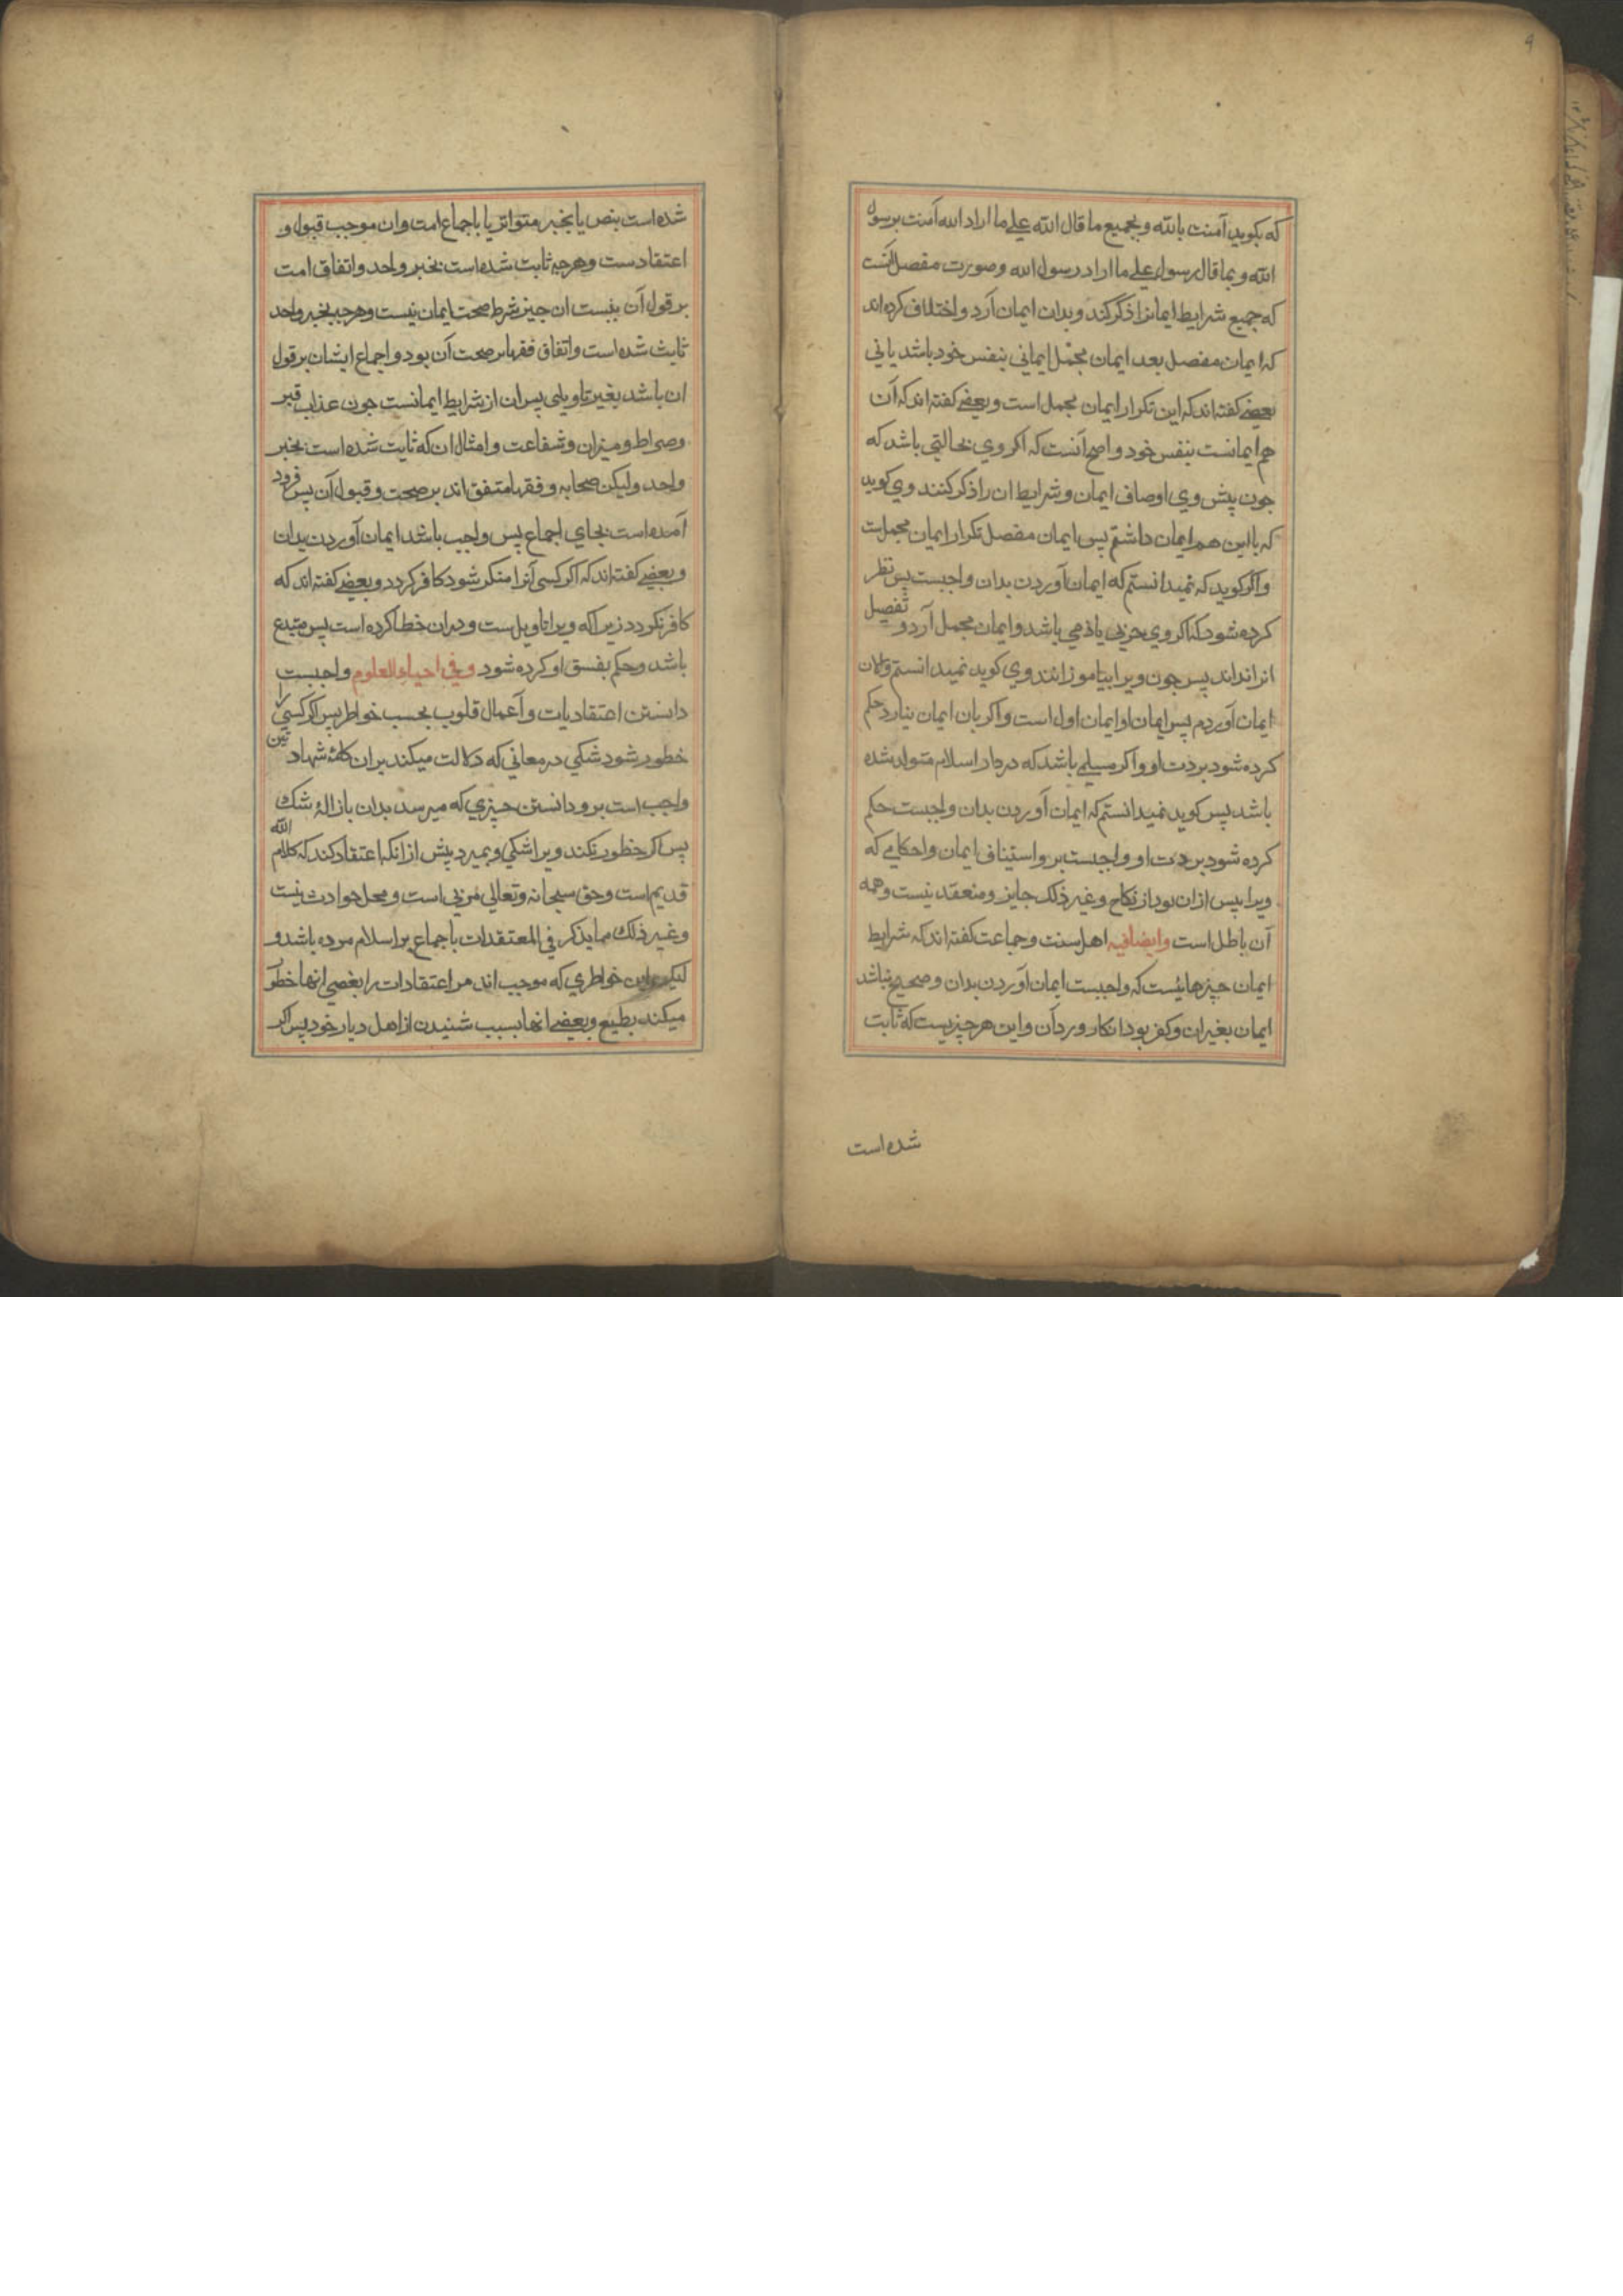 که بکوید آمنت بالله و بجمیع ما قال الله علی ما اراد الله آمنت برسول
الله و بما قال رسول علی ما اراد رسول الله و صورت مفصل آنست
که جمیع شرایط ایمانرا ذکر کند و بدان ایمان آرد و اختلاف کرده اند
که ایمان مفصل بعد ایمان مجمل ایمانی بنفس خود باشد یا نی
بعضی کفته اند که این تکرار ایمان مجمل است و بعضی کفته اند که آن
هم ایمانست بنفس خود و اصح آنست که اکر وی بحالتی باشد که
جون پیش وی اوصاف ایمان و شرایط ان را ذکر کنند وی کوید
که با این هم ایمان داشتم پس ایمان مفصل تکرار ایمان مجملست
و اکر کوید که نمیدانستم که ایمان آوردن بدان واجبست پس نظر
کرده شود که اکر وی حربی یا ذمی باشد و ایمان مجمل آرد و تفصیل
انرا نداند پس جون ویرا بیاموزانند وی کوید نمیدانستم و الان
ایمان آوردم پس ایمان او ایمان اول است و اکر بان ایمان نیارد حکم
کرده شود بردت او و اکر مسلمی باشد که در دار اسلام متولد شده
باشد پس کوید نمیدانستم که ایمان آوردن بدان واجبست حکم
کرده شود بردت او و واجبست برو استیناف ایمان و احکامی که
ویرا پیس ازان بود از نکاح و غیر ذلک جایز و منعقد نیست و همه
آن باطل است و ایضا فیه اهل سنت و جماعت کفته اند که شرایط
ایمان چیزهائیست که واجبست ایمان آوردن بدان و صحیح نباشد
ایمان بغیر ان و کفر بود انکار و رد آن و این هر چیزیست که ثابت
شده است
شده است بنص یا بخبر متواتر یا باجماع امت و ان موجب قبول و
اعتقادست و هرجه ثابت شده است بخبر واحد و اتفاق امت
بر قول آن نیست ان جیز شرط صحت ایمان نیست و هرجه بخبر واحد
ثابث شده است و اتفاق فقها بر صحت آن بود و اجماع ایشان بر قول
ان باشد بغیر تاویلی پس ان از شرایط ایمانست جون عذاب قبر
و صراط و میزان و شفاعت و امثال ان که ثابت شده است بخبر
واحد و لیکن صحابه و فقها متفق اند بر صحت و قبول آن پس فرود
آمده است بجای اجماع پس واجب باشد ایمان آوردن بدان
و بعضی کفته اند که اکر کسی آنرا منکر شود کافر کردد و بعضی کفته اند که
کافر نکردد زیرا که ویرا تاویل ست و دران خطا کرده است پس مبتدع
باشد و حکم بفسق او کرده شود و فی احیاء العلوم واجبست
دانستن اعتقادیات و آعمال قلوب بحسب خواطر پس اکر کسی را
خطور شود شکی در معانی که دلالت میکند بران کلمۀ شهادتین
واجب است برو دانستن چیزی که میرسد بدان بازالۀ شک
پس اکر خطور نکند ویرا شکی و بمیرد پیش ازانکه اعتقاد کند که کلام الله
قدیم است و حق سبحانه و تعالی مرئی است و محل حوادث نیست
و غیر ذلک مما یذکر فی المعتقدات باجماع بر اسلام مرده باشد و
لیکن این خواطری که موجب اند مر اعتقادات را بعضی انها خطور
میکند بطبع و بعضی انها بسبب شنیدن از اهل دیار خود پس اکر